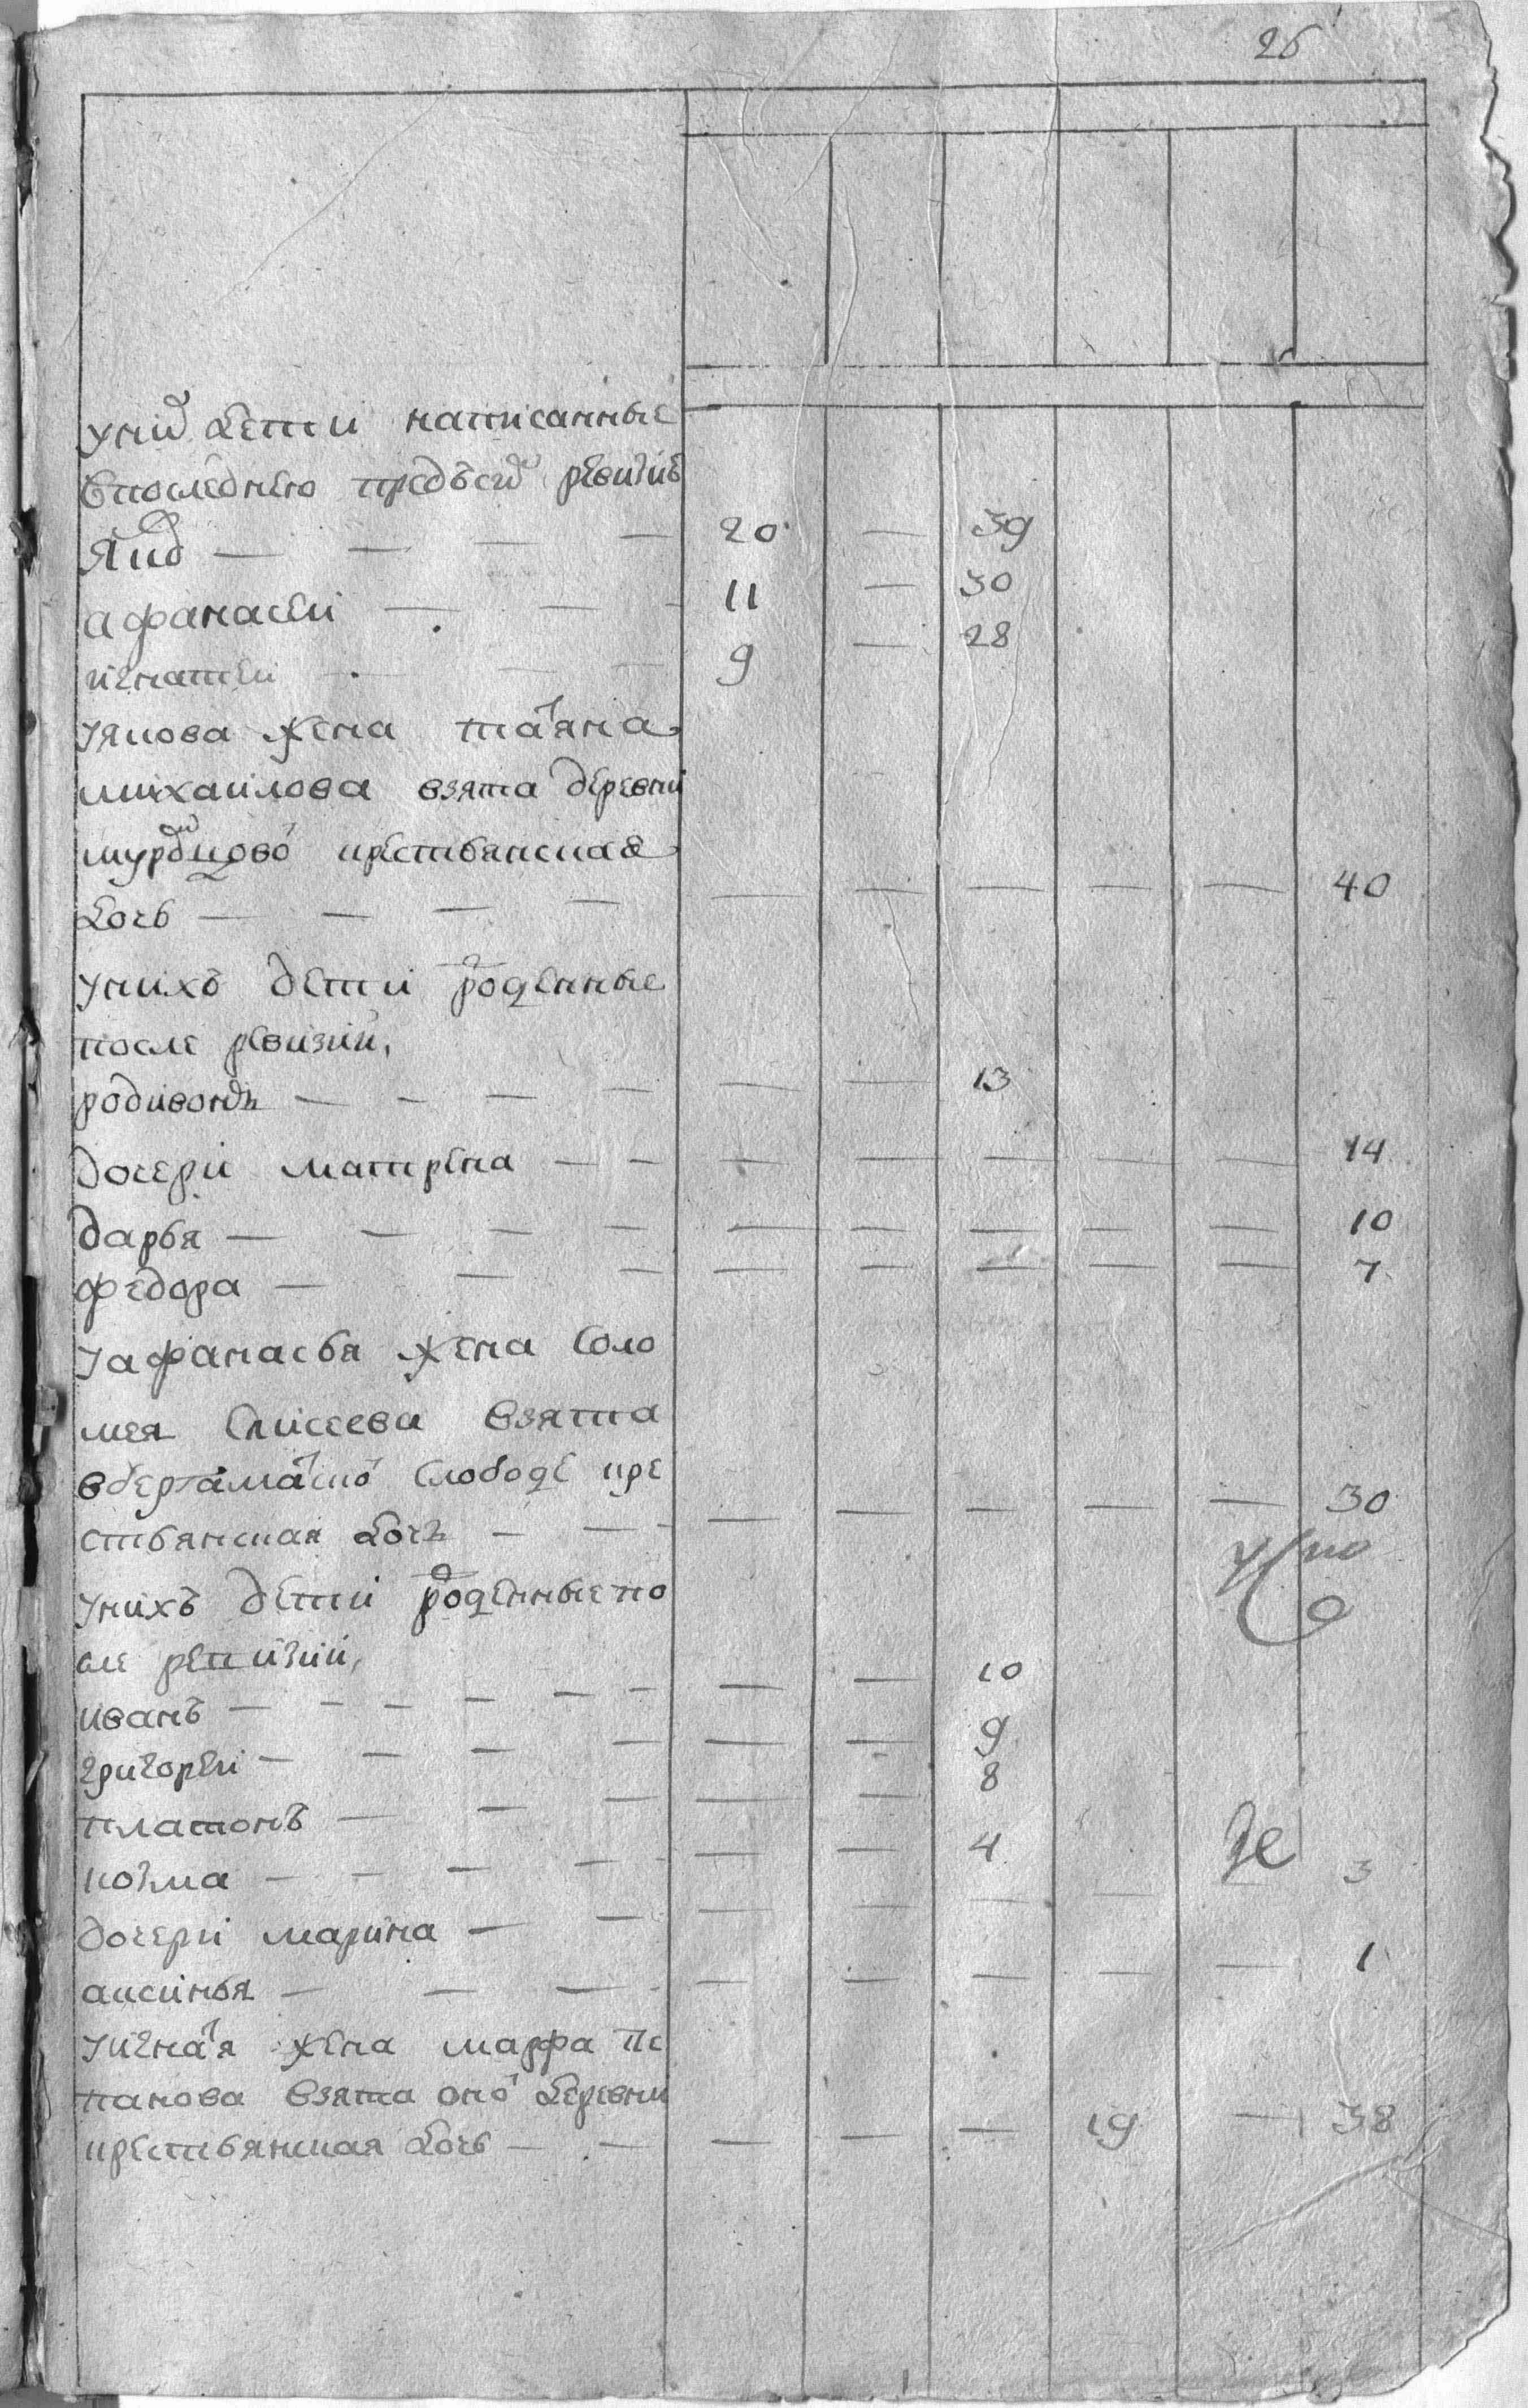 26
у них дети написанные
в последнею пред сей ревизиѣ
яков — — — — 20 — 39
афанасеи — — — 11 — 30
игнатеи — — — 9 — 28
у якова жена татьяна
михаилова взята деревни
крестьянская
дочь — — — — — — — — — 40
у нихъ дети рожденные
после ревизии,
родивонъ — — — — — — 13
дочери матрена — — — — — — — 14
дарья — — — — — — — — — 10
федора — — — — — — — — 7
у афанасья жена соло
мея елисеева взята
в бергаматской слободе кре
стьянская дочь — — — — — — — 30
у нихъ дети рожденные по
сле ревизии,
иванъ — — — — — — — — 10
григореи — — — — — — 9
платонъ — — — — — 8
козма — — — — — — 4
дочери марина — — — — — — — 3
аксинья — — — — — — — — 1
у игнатья жена марфа сте
панова взята оной деревни
крестьянская дочь — — — — — 19 — 38